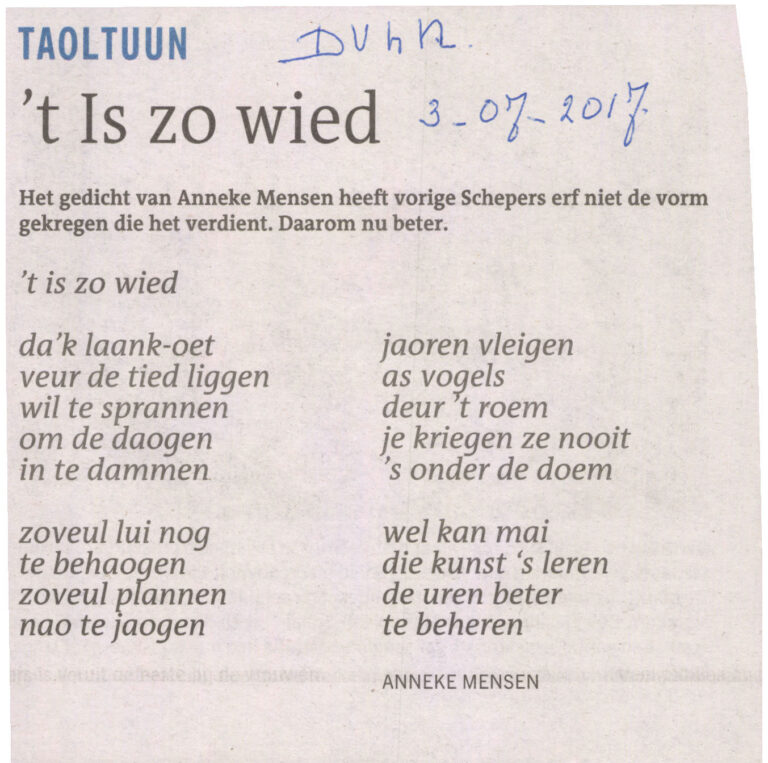 TAOLTUUN
DVhN.
't Is zo wied
3-07-2017.
Het gedicht van Anneke Mensen heeft vorige Schepers erf niet de vorm
gekregen die het verdient. Daarom nu beter.
't is zo wied
da'k laank-oet
veur de tied liggen
wil te sprannen
om de daogen
in te dammen
zoveul lui nog
te behaogen
zoveul plannen
nao te jaogen
jaoren vleigen
as vogels
deur 't roem
je kriegen ze nooit
's onder de doem
wel kan mai
die kunst 's leren
de uren beter
te beheren
ANNEKE MENSEN